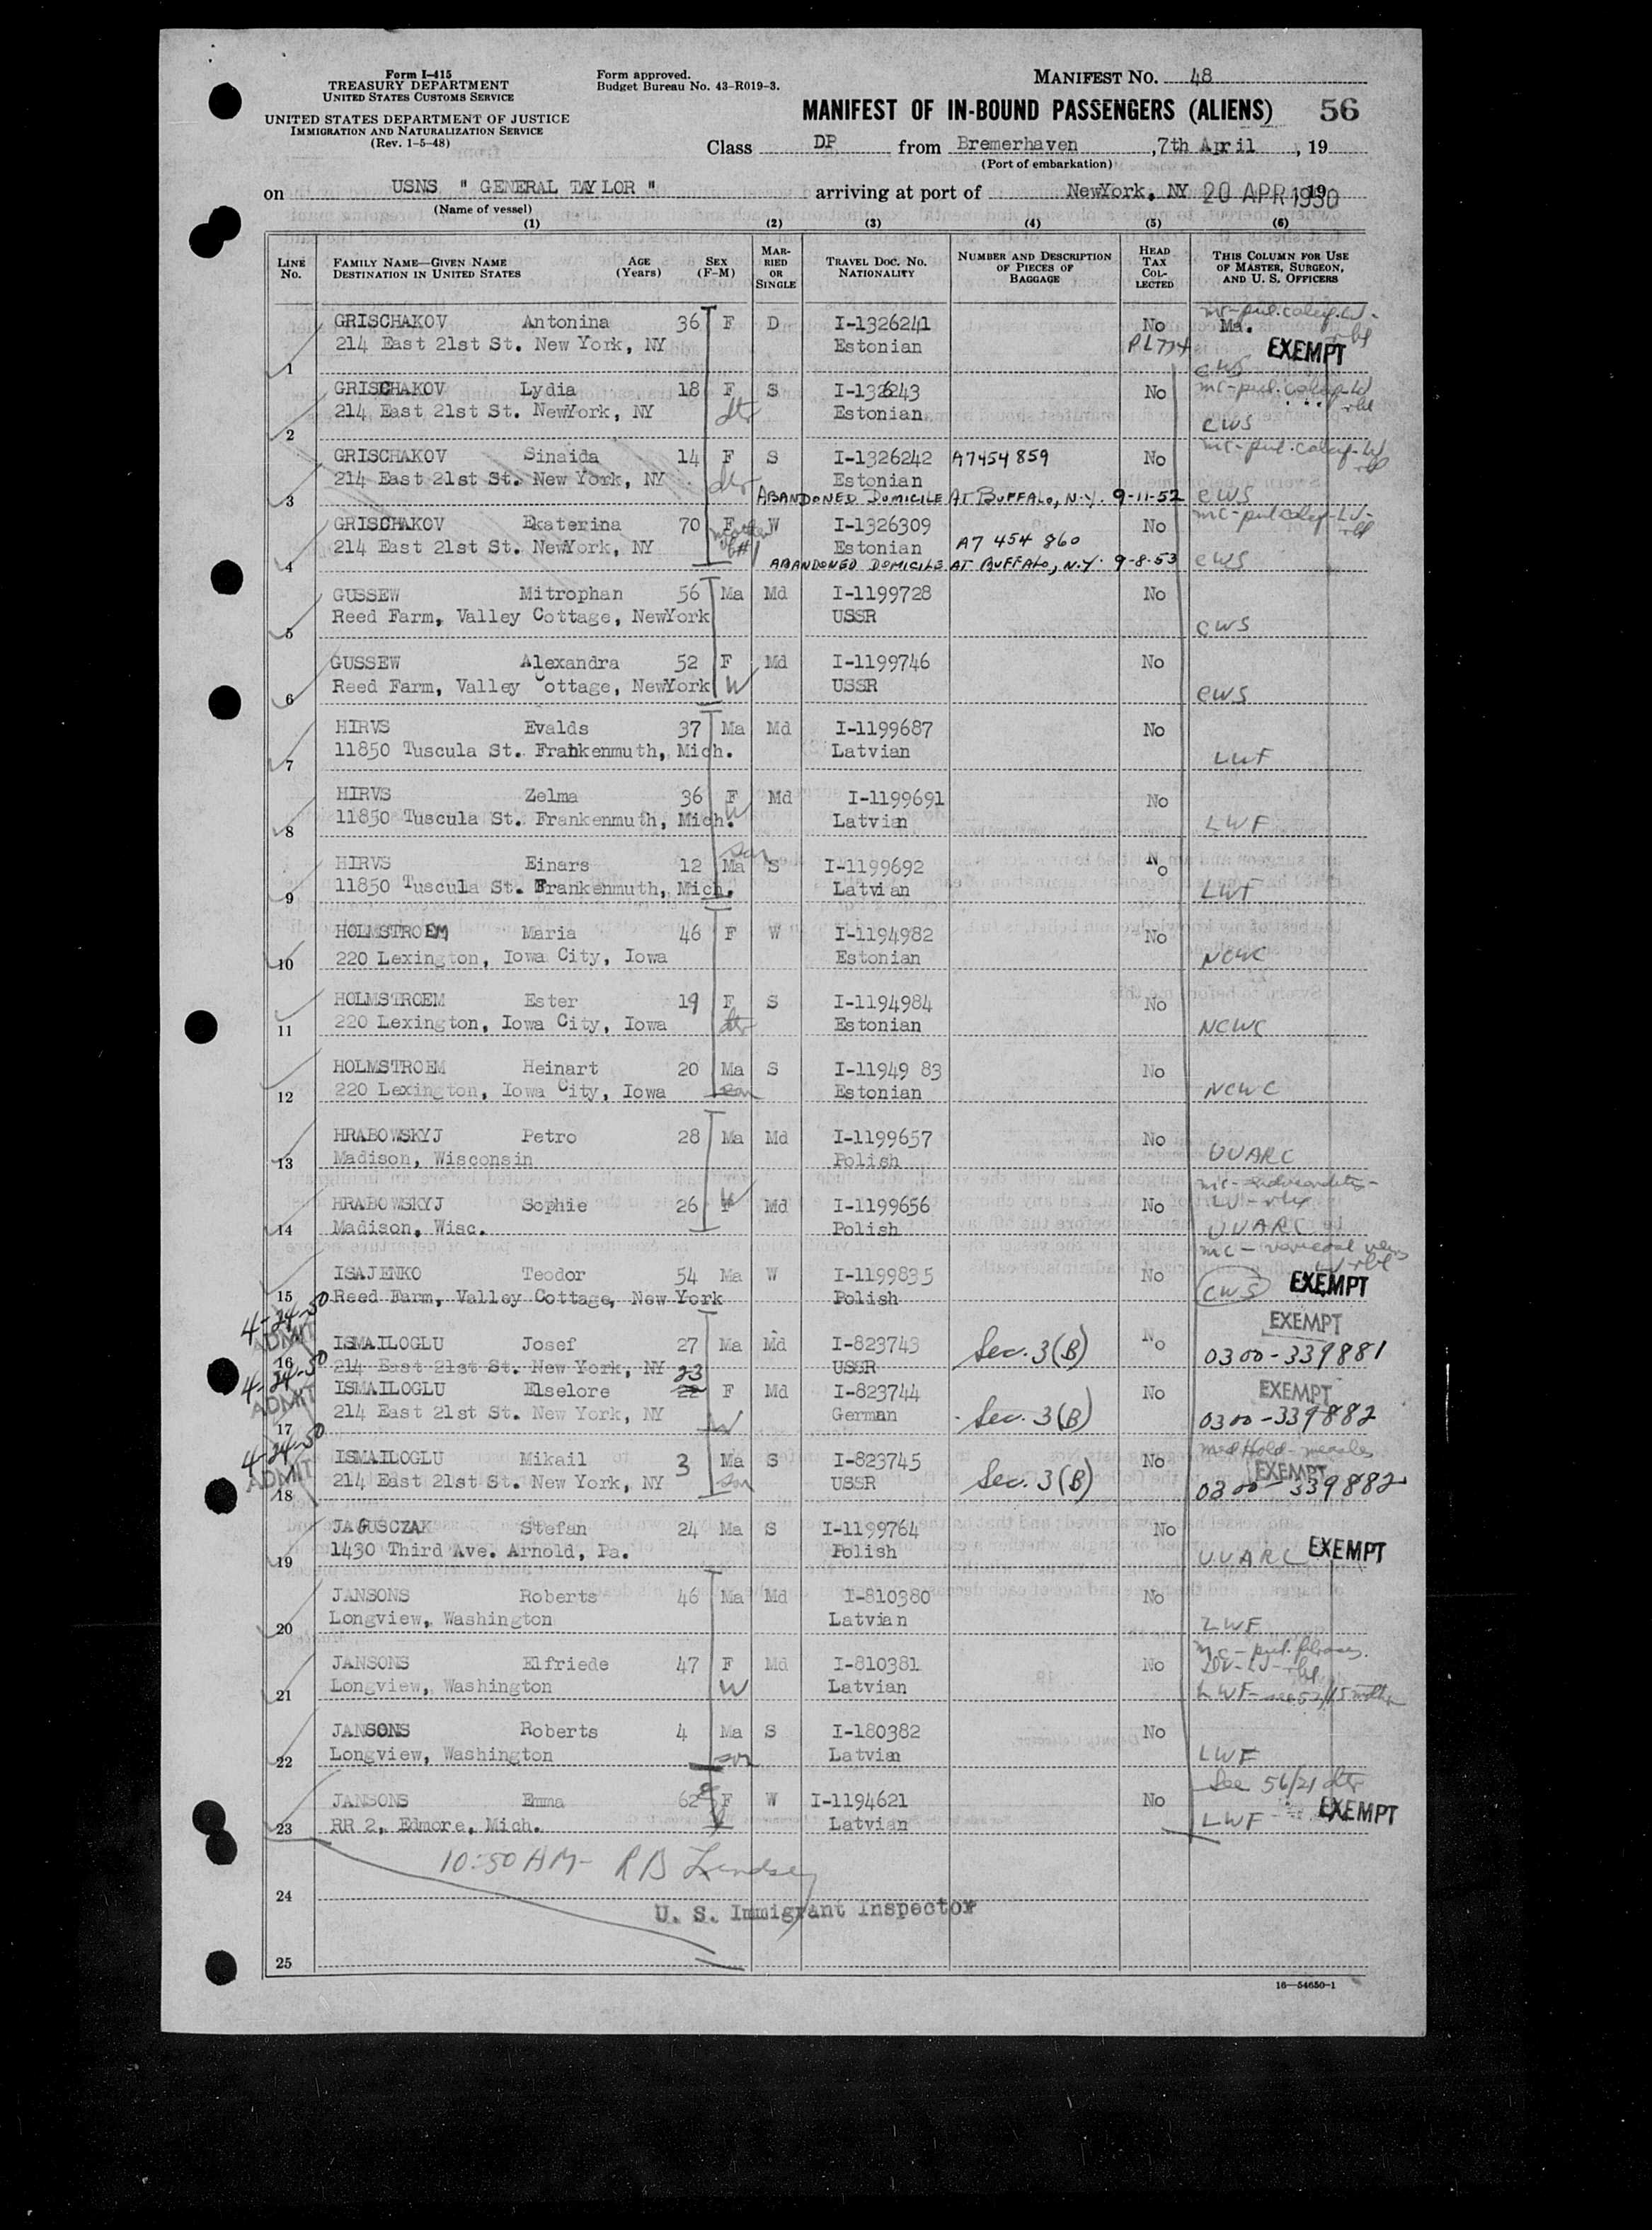 Form I-415
TREASURY DEPARTMENT
UNITED STATES CUSTOMS SERVICE
UNITED STATES DEPARTMENT OF JUSTICE
IMMIGRATION AND NATURALIZATION SERVICE
(Rev. 1-5-48)
Form approved.
Budget Bureau No. 43-R019-3.
MANIFEST NO. 48
MANIFEST OF IN-BOUND PASSENGERS (ALIENS) 56
Class DP from Bremerhaven ,7th April , 19
(Port of embarkation)
on USNS " GENERAL TAYLOR " arriving at port of NewYork, NY 20 APR 1950 19
(Name of vessel)
(1) (2) (3) (4) (5) (6)
LINE No. FAMILY NAME—GIVEN NAME DESTINATION IN UNITED STATES AGE (Years) SEX (F-M) MARRIED OR SINGLE TRAVEL DOC. NO. NATIONALITY NUMBER AND DESCRIPTION OF PIECES OF BAGGAGE HEAD TAX COLLECTED THIS COLUMN FOR USE OF MASTER, SURGEON, AND U. S. OFFICERS
GRISCHAKOV Antonina 36 F D I-1326241 No Ma.
214 East 21st St. New York, NY Estonian PL774 EXEMPT
1 CWS
GRISCHAKOV Lydia 18 F S I-1326243 No
214 East 21st St. NewYork, NY dtr Estonian
2 CWS
GRISCHAKOV Sinaida 14 F S I-1326242 A7454859 No
214 East 21st St. New York, NY dtr Estonian
3 ABANDONED DOMICILE AT BUFFALO, N.Y. 9-11-52 CWS
GRISCHAKOV Ekaterina 70 F W I-1326309 No
214 East 21st St. NewYork, NY mother of #1 Estonian A7 454 860
4 ABANDONED DOMICILE AT BUFFALO, N.Y. 9-8-53 CWS
GUSSEW Mitrophan 56 Ma Md I-1199728 No
Reed Farm, Valley Cottage, NewYork USSR
5 CWS
GUSSEW Alexandra 52 F Md I-1199746 No
Reed Farm, Valley Cottage, NewYork W USSR
6 CWS
HIRVS Evalds 37 Ma Md I-1199687 No
11850 Tuscula St. Frankenmuth, Mich. Latvian
7 LWF
HIRVS Zelma 36 F Md I-1199691 No
11850 Tuscula St. Frankenmuth, Mich. W Latvian
8 LWF
HIRVS Einars 12 son Ma S I-1199692 No
11850 Tuscula St. Frankenmuth, Mich. Latvian
9 LWF
HOLMSTROEM Maria 46 F W I-1194982 No
220 Lexington, Iowa City, Iowa Estonian
10 NCWC
HOLMSTROEM Ester 19 F S I-1194984 No
220 Lexington, Iowa City, Iowa dtr Estonian
11 NCWC
HOLMSTROEM Heinart 20 Ma S I-11949 83 No
220 Lexington, Iowa City, Iowa son Estonian
12 NCWC
HRABOWSKYJ Petro 28 Ma Md I-1199657 No
Madison, Wisconsin Polish
13 UUARC
HRABOWSKYJ Sophie 26 F W Md I-1199656 No
Madison, Wisc. Polish
14 UUARC
ISAJENKO Teodor 54 Ma W I-1199835 No
Reed Farm, Valley Cottage, New York Polish
15 CWS EXEMPT
4-24-50 ADMIT
ISMAILOGLU Josef 27 Ma Md I-823743 Sec. 3(B) No EXEMPT
16 214 East 21st St. New York, NY USSR 0300-339881
4-24-50 ADMIT
ISMAILOGLU Elselore 22 23 F Md I-823744 No EXEMPT
214 East 21st St. New York, NY W German Sec. 3(B) 0300-339882
17
4-24-50 ADMIT
ISMAILOGLU Mikail 3 Ma S I-823745 No Med Hold - measles
214 East 21st St. New York, NY son USSR Sec. 3(B) EXEMPT 0300-339882
18
JAGUSCZAK Stefan 24 Ma S I-1199764 No
1430 Third Ave. Arnold, Pa. Polish
19 UUARC EXEMPT
JANSONS Roberts 46 Ma Md I-810380 No
Longview, Washington Latvian
20 LWF
JANSONS Elfriede 47 F Md I-810381 No
Longview, Washington W Latvian
21 LWF
JANSONS Roberts 4 Ma S I-180382 No
Longview, Washington son Latvian
22 LWF
See 56/21 dtr
JANSONS Emma 62 F W I-1194621 No
RR 2, Edmore, Mich. Latvian
23 LWF EXEMPT
10:50 AM- R B Lindsey
24
U. S. Immigrant Inspector
25
16—54650-1